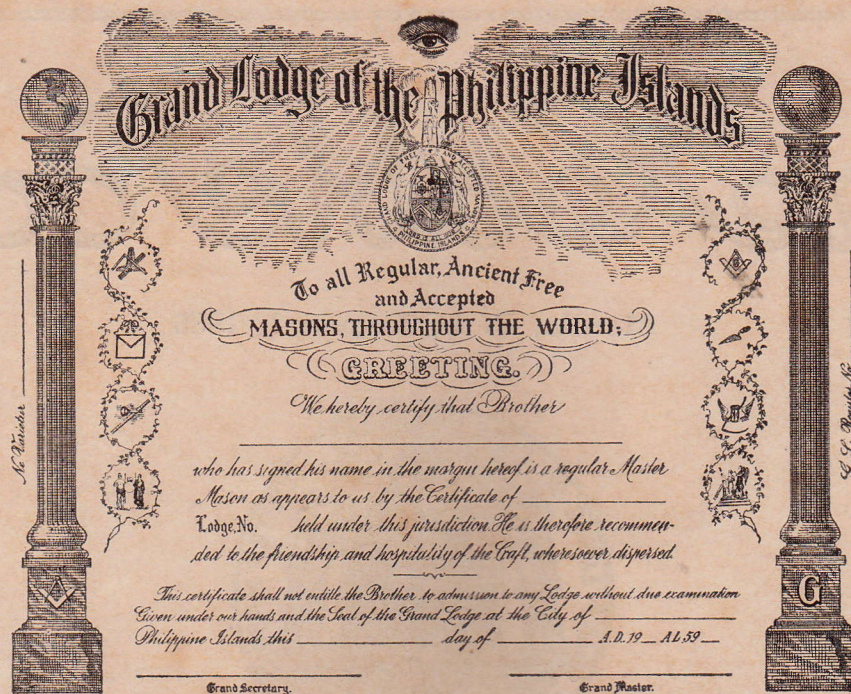 Grand Lodge of the Philippine Islands
To all Regular, Ancient Free
and Accepted
MASONS, THROUGHOUT THE WORLD;
GREETING.
We hereby certify that Brother
who has signed his name in the margin hereof is a regular Master
Mason as appears to us by the Certificate of
Lodge, No. held under this jurisdiction. He is therefore recommen-
ded to the friendship and hospitality of the Craft, wheresoever dispersed.
This certificate shall not entitle the Brother to admission to any Lodge without due examination
Given under our hands and the Seal of the Grand Lodge at the City of
Philippine Islands this day of A.D. 19 A.L. 59
Grand Secretary. Grand Master.
Ne Varietur
G